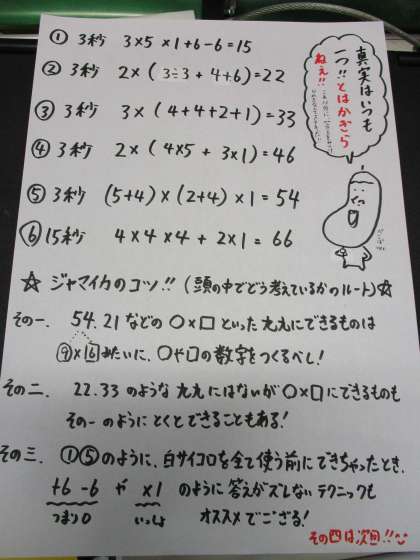 ① 3秒 3×5×1+6-6=15
② 3秒 2×(3÷3+4+6)=22
③ 3秒 3×(4+4+2+1)=33
④ 3秒 2×(4×5+3×1)=46
⑤ 3秒 (5+4)×(2+4)×1=54
⑥ 15秒 4×4×4+2×1=66
真実はいつも
一つ!!とはかぎら
ねぇ!!
☆ジャマイカのコツ!!(頭の中でどう考えているかのルート)☆
その一. 54.21などの○×□といった九九にできるものは
⑨×16みたいに、○や□の数字をつくるべし!
その二. 22.33のような九九にはないが○×□にできるものも
その一のようにとくとできることもある!
その三. ①⑤のように、白サイコロを全て使う前にできちゃったとき、
+6-6 や ×1 のように答えがズレないテクニックも
つまり0 いっしょ オススメでござる!
その四は次回!!